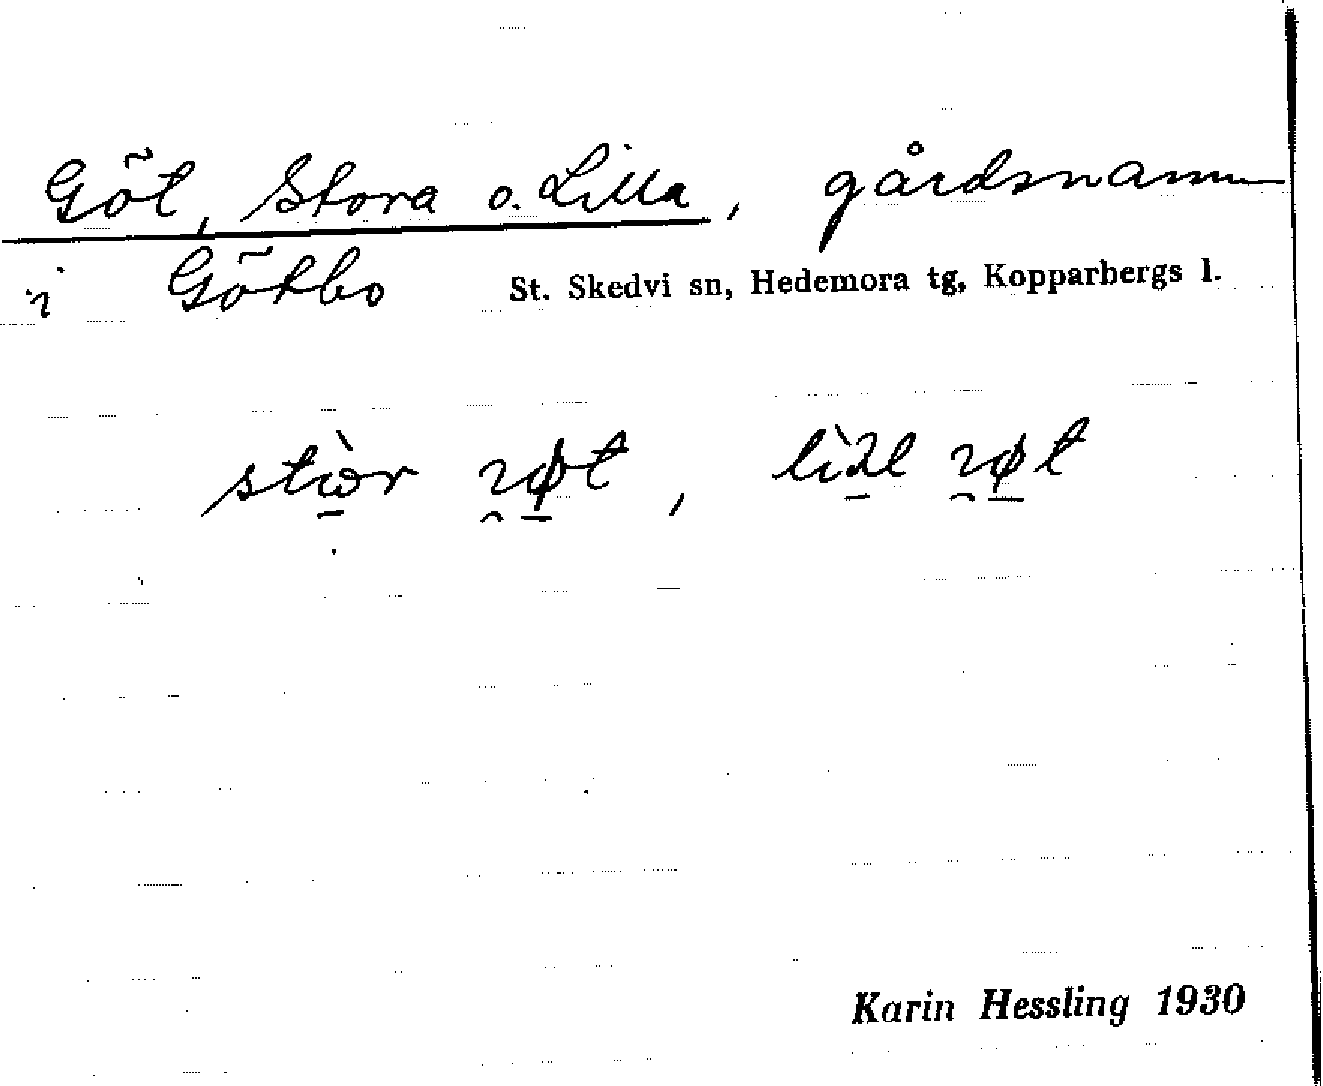 Göt, Stora o. Lilla, gårdsnamn
i Götbo St. Skedvi sn, Hedemora tg, Kopparbergs l.
Karin Hessling 1930